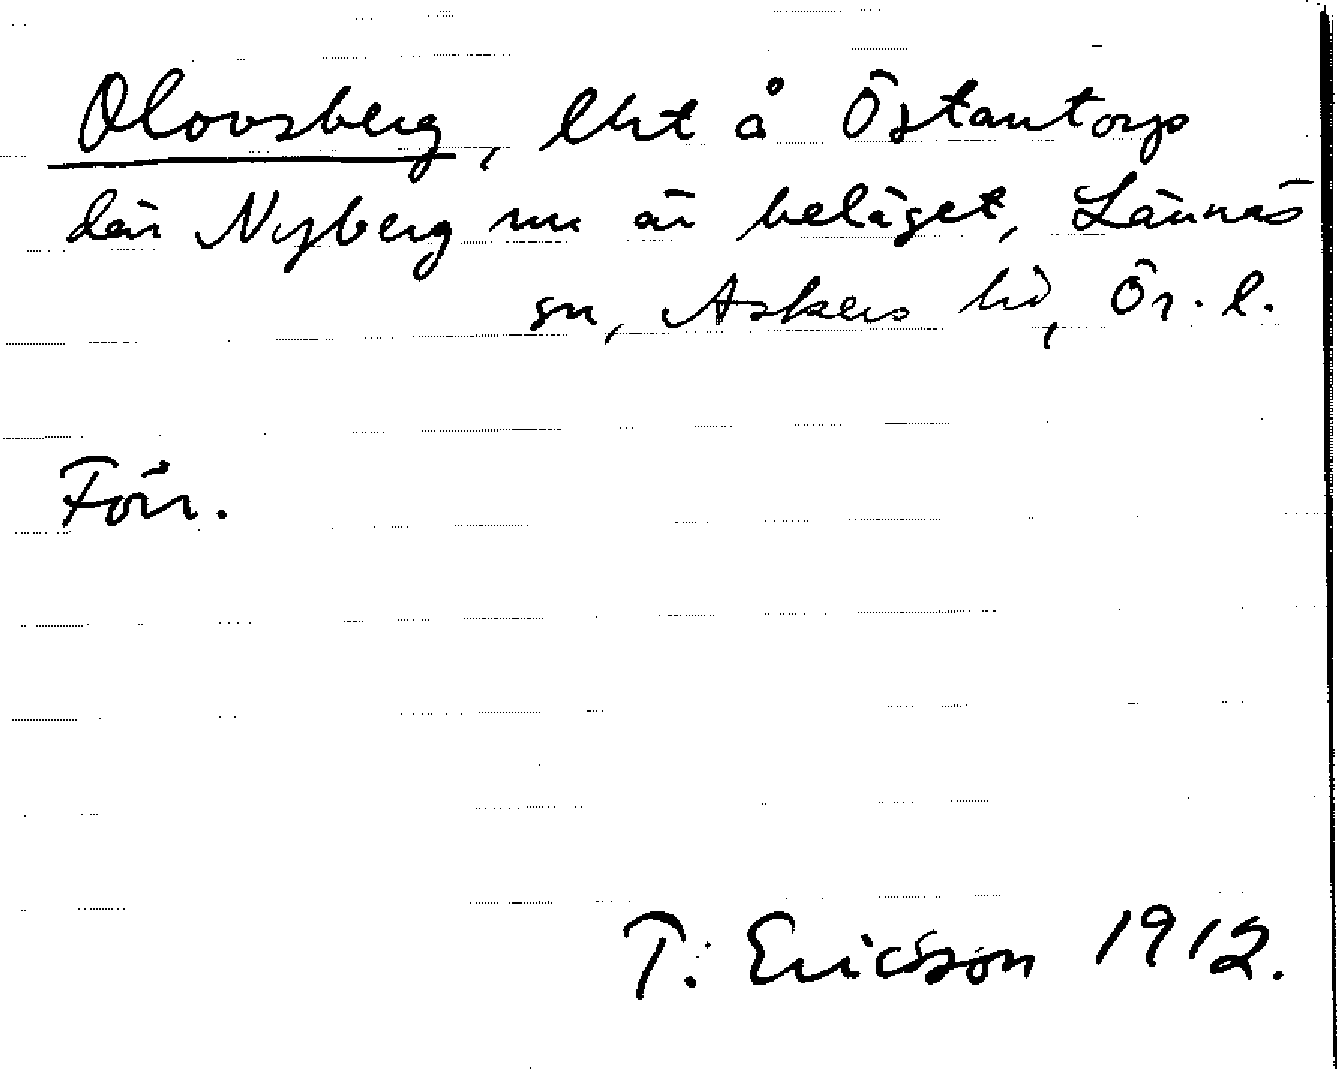 Olovsberg, lht å Östantorp
där Nyberg nu är beläget, Lännäs
sn, Askers hd, Ör. l.
Förr.
T. Ericsson 1912.